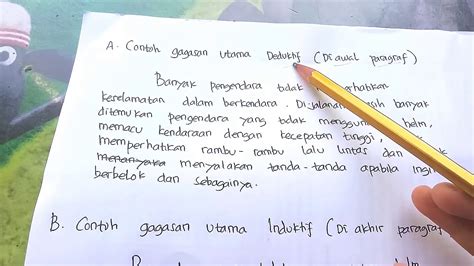 A. Contoh gagasan utama Deduktif (Di awal paragraf)
Banyak pengendara tidak
keselamatan dalam berkendara. Di jalanan banyak
ditemukan pengendara yang tidak helm,
memacu kendaraan dengan kecepatan tinggi,
memperhatkan rambu-rambu lalu lintas dan
menyalakan tanda-tanda apabila
berbelok dan sebagainya.
B. Contoh gagasan utama Induktif (Di akhir paragraf